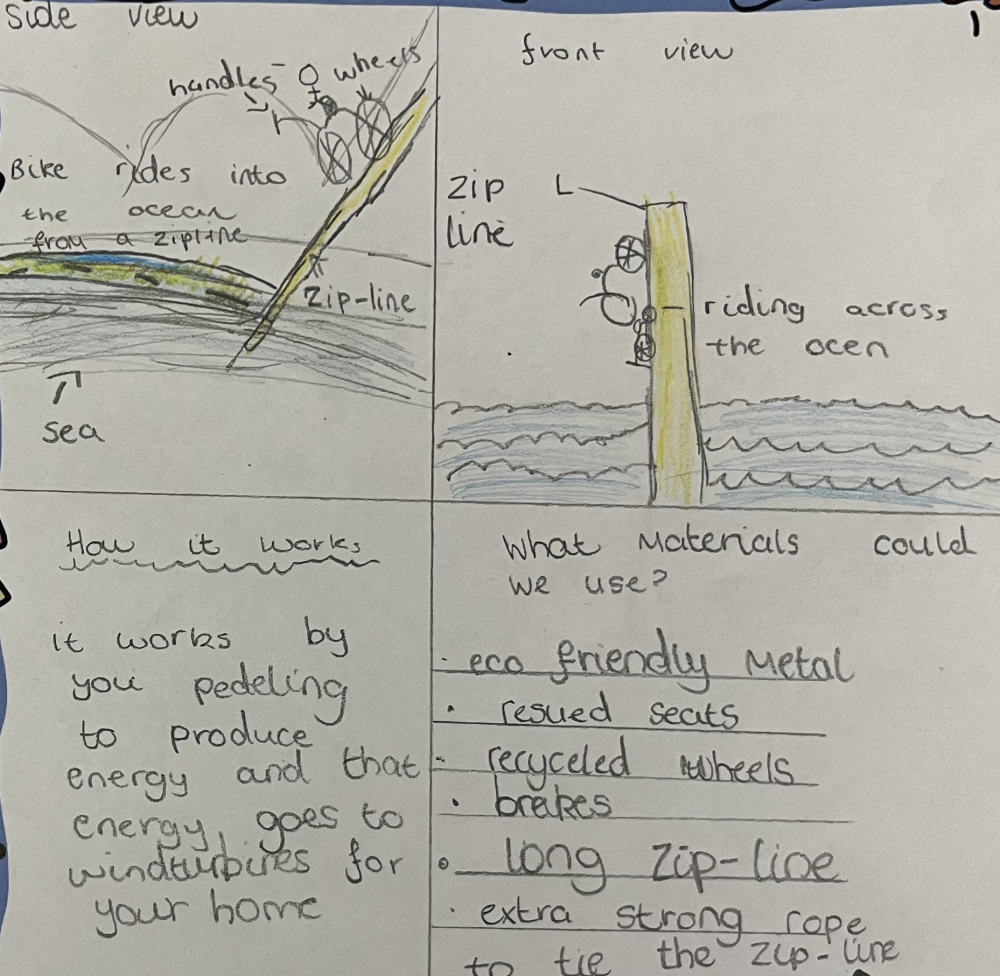 side view
handles
wheels
Bike rides into
the ocean
from a zipline
zip-line
sea
1
front view
zip
line
riding across
the ocen
How it works
it works by
you pedeling
to produce
energy and that
energy, goes to
windturbines for
your home
What Materials could
we use?
· eco friendly Metal
· resued seats
- recyceled wheels
· brakes
· long zip-line
· extra strong rope
to tie the zip-line